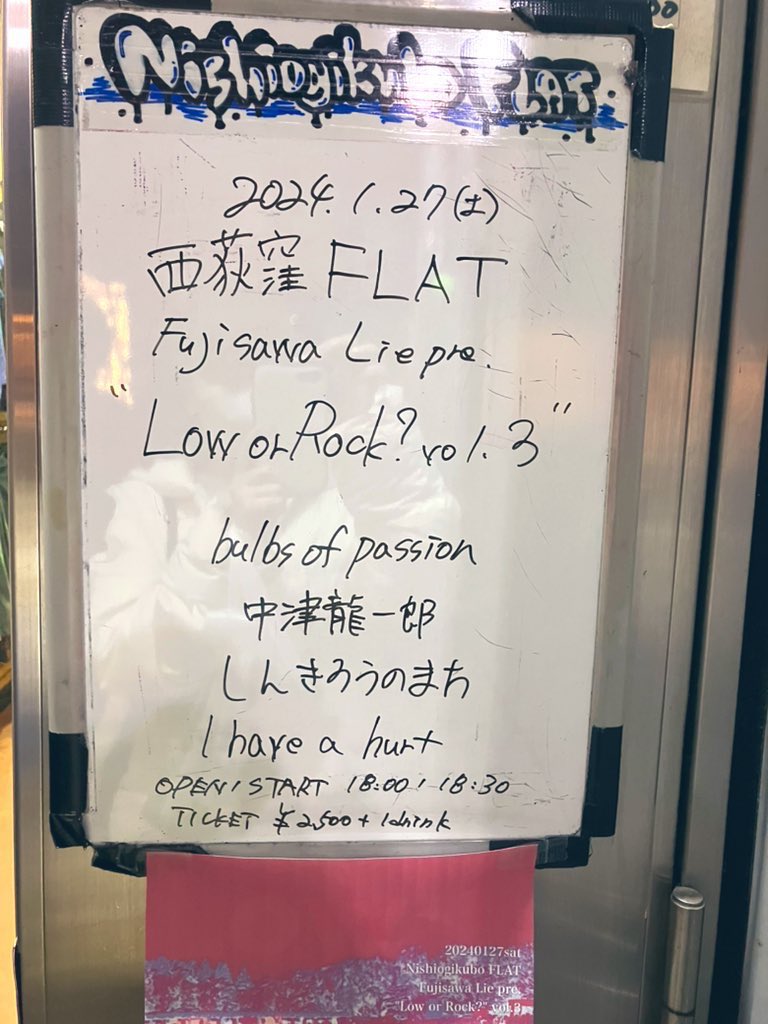 Nishiogikubo FLAT
2024.1.27(土)
西荻窪 FLAT
Fujisawa Lie pre.
"Low or Rock? vol.3"
bulbs of passion
中津龍一郎
しんきろうのまち
I have a hurt
OPEN/START 18:00/18:30
TICKET ¥2,500+1drink
20240127sat
Nishiogikubo FLAT
Fujisawa Lie pre.
"Low or Rock?" vol.3